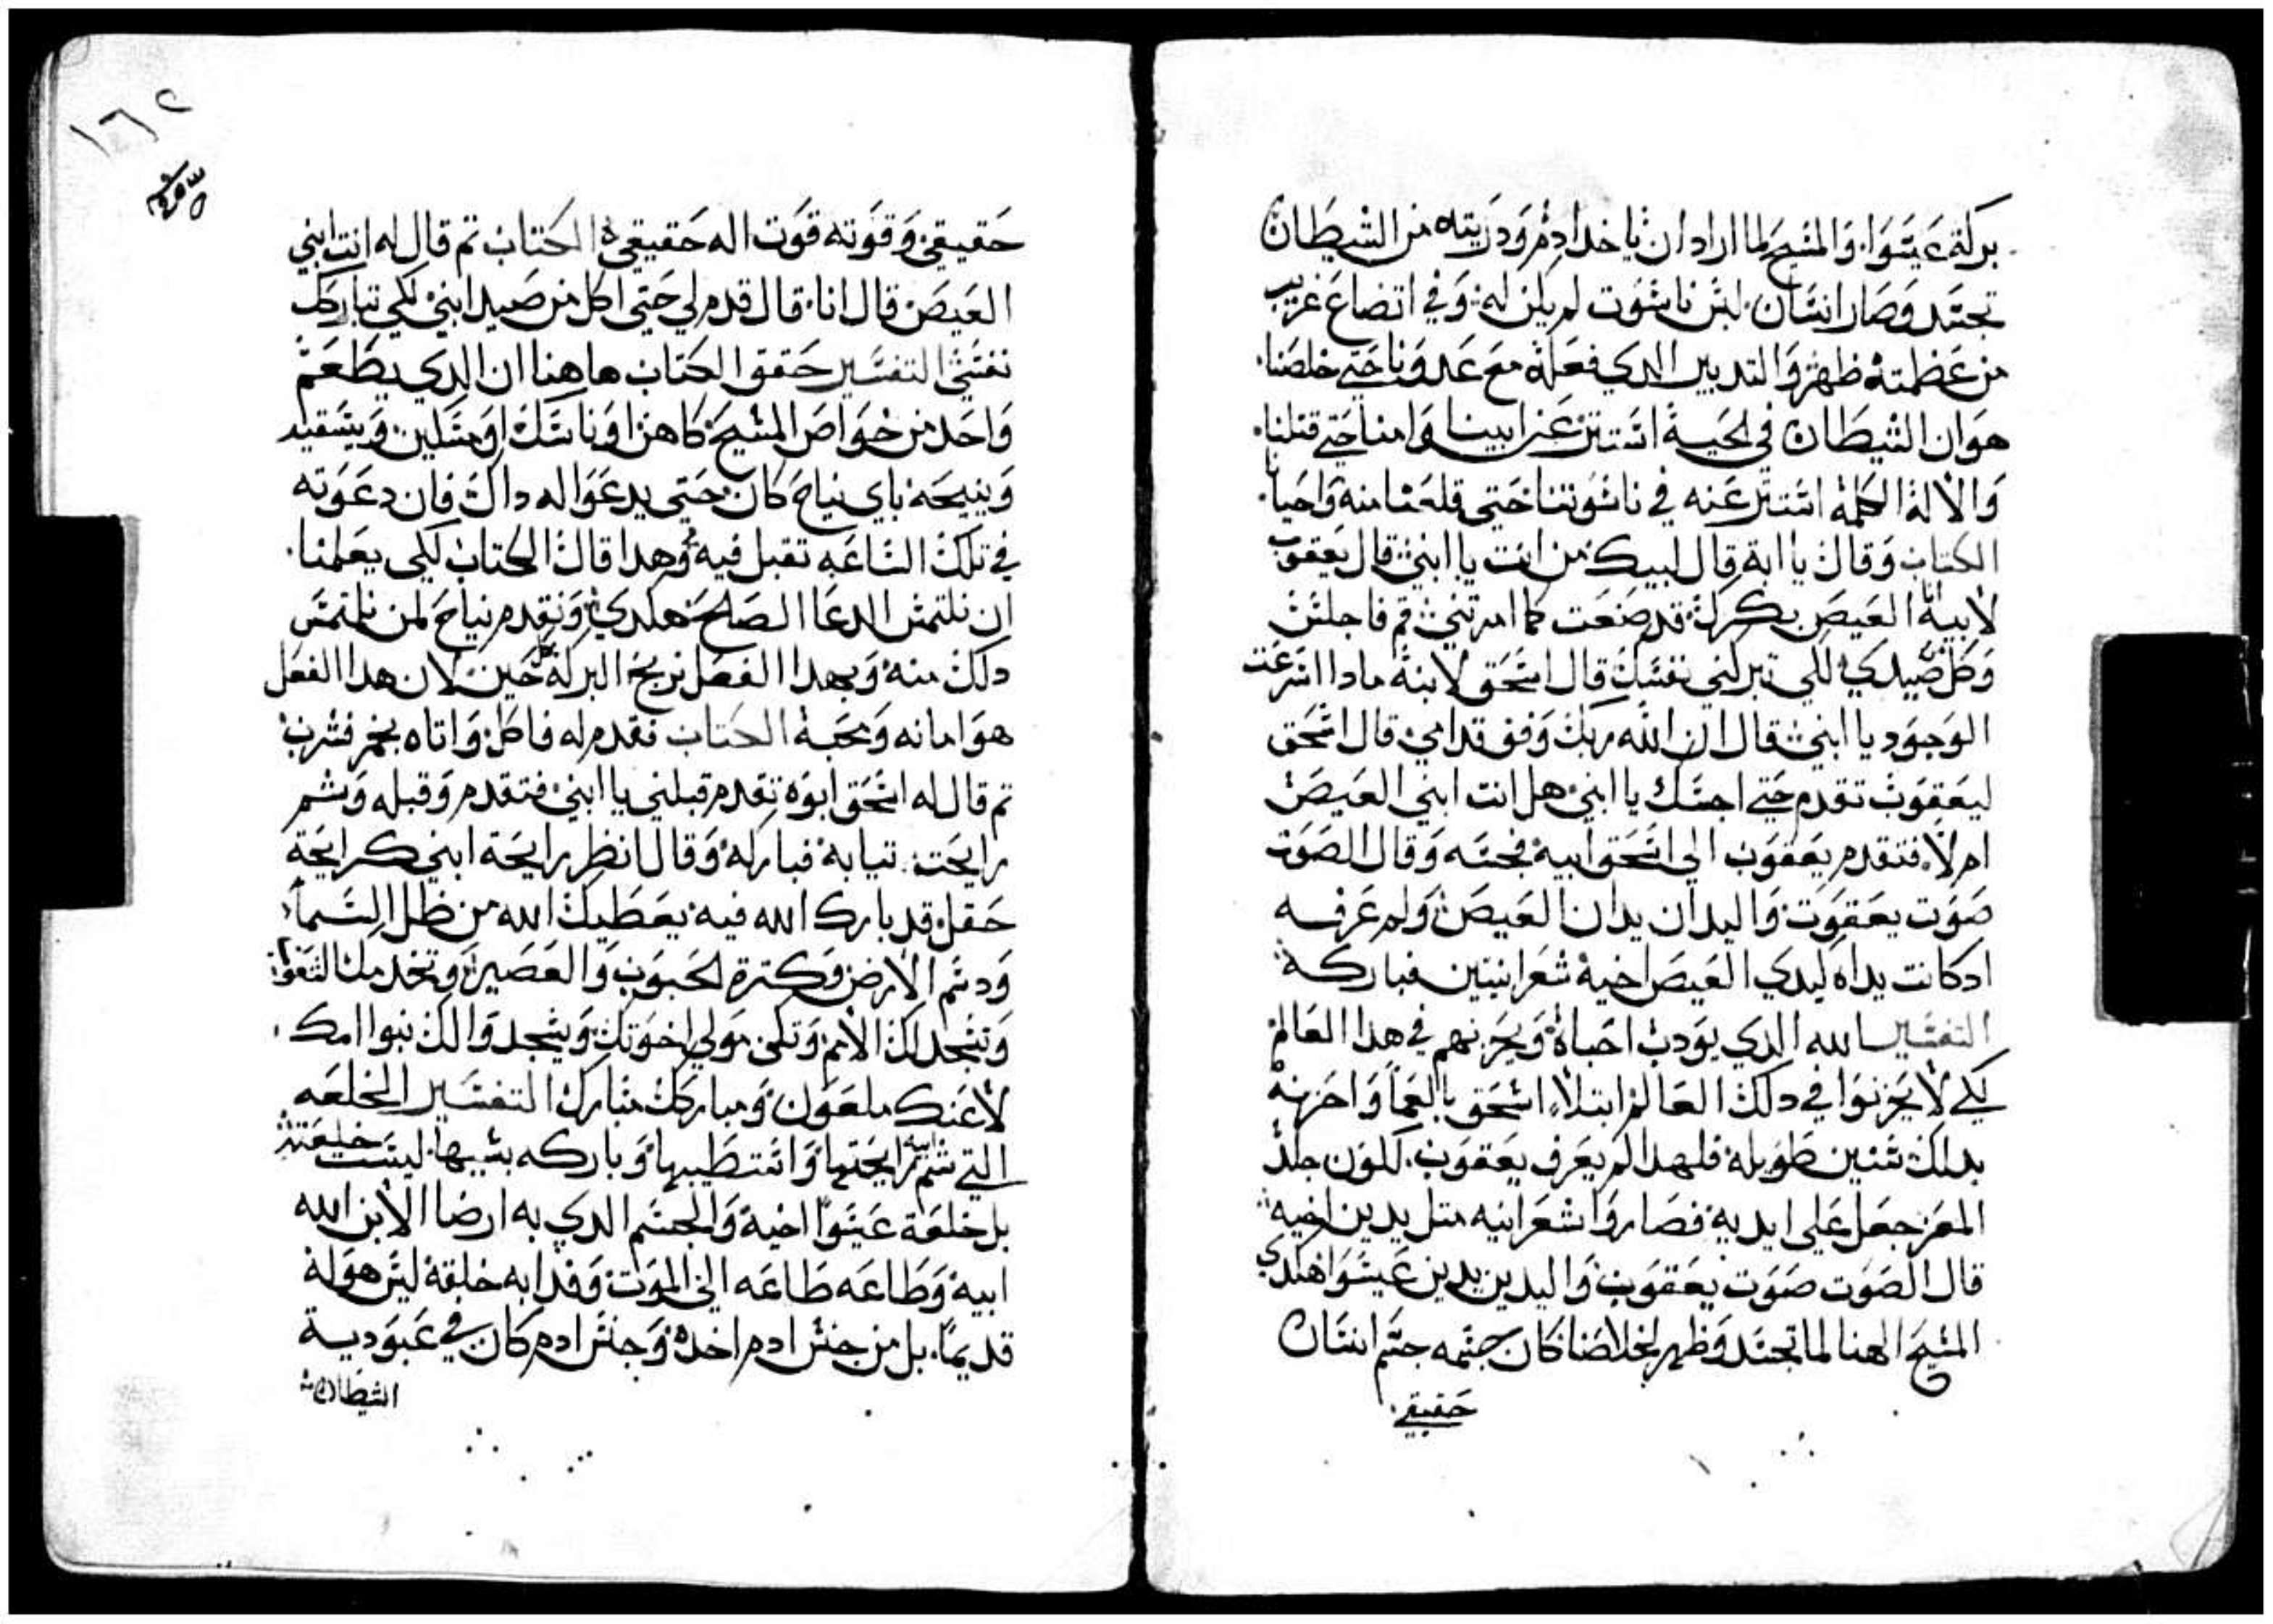 بركة عيسوا. والمسيح لما اراد ان ياخد ادم ودريته من الشيطان
تجسد وصار انسان. لبس ناسوت لم يكن له. وفي اتضاع غريب
من عظمته ظهر والتدبير الدي فعله مع عدونا حتي خلصنا.
هو ان الشيطان في الحية استتر عن ابينا وامنا حتي قتلنا.
والاله الكلمة استتر عنه في ناسوتنا حتي قلعنا منه واحيانا.
الكتاب وقال يا ابة قال لبيك من انت يا ابني قال يعقوب
لابيه انا العيص بكرك قد صنعت كما امرتني قم فاجلس
وكل صيدي لكي تبركني نفسك قال اسحق لابنه مادا اسرعت
الوجود يا ابني قال ان الله ربك وفق قدامي قال اسحق
ليعقوب تقدم حتي اجسك يا ابني هل انت ابني العيص
ام لا. فتقدم يعقوب الي اسحق ابيه فجسه وقال الصوت
صوت يعقوب واليدان يدان العيص ولم عرفه
ادكانت يداه ليدي العيص اخيه شعرانيتين فباركه
التفسير الله الدي يودب احباه ويحزنهم في هدا العالم
لكي لا يحزنوا في دلك العالم ابتلا اسحق بالعما واحزنه
بدلك سنين طويله فلهدا لم يعرف يعقوب. لكون جلد
المعز جعل علي ايديه فصاروا شعرانيه متل يدين اخيه
قال الصوت صوت يعقوب واليدين يدين عيسوا هكدي
المسيح الهنا لما تجسد وظهر لخلاصنا كان جسمه جسم انسان
حقيقي.
حقيقي وقوته قوت اله حقيقي الكتاب تم قال له انت ابني
العيص قال انا. قال قدم لي حتي اكل من صيد ابني لكي تباركك
نفسي التفسير حقق الكتاب هاهنا ان الدي يطعم
واحد من خواص المسيح كاهن او ناسك او مسكين ويسقيه
وينيحه باي نياح كان حتي يدعوا له داك فان دعوته
في تلك الساعه تقبل فيه وهدا قال الكتاب لكي يعلمنا.
ان نلتمس الدعا الصالح هكدي ونقدم نياح لمن نلتمس
دلك منه وبهدا الفصل نربح البركة كل حين لان هدا الفعل
هو امانه ومحبة الكتاب فقدم له فاكل واتاه بخمر فشرب
تم قال له اسحق ابوه تقدم قبلني يا ابني فتقدم وقبله وشم
رايحت تيابه فباركه وقال انظر رايحة ابني كرايحة
حقل قد بارك الله فيه يعطيك الله من ظل السماء
ودسم الارض وكترة الحبوب والعصير وتخدمك الشعوب
وتسجد لك الامم وتكن مولي اخوتك ويسجدوا لك بنوا امك.
لاعنك ملعون ومباركك مبارك التفسير الخلعه
التي شم ابيه رايحتها واستطيبها وباركه بسببها. ليست خلعته
بل خلعة عيسوا اخيه والجسم الدي به ارضا الابن الله
ابيه وطاعه طاعه الي الموت وفدا به خلقه ليس هو له
قديما. بل من جنس ادم اخده وجنس ادم كان في عبودية
الشيطان